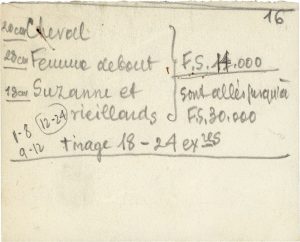 16
20cm Cheval
28cm Femme debout
18cm Suzanne et vieillards
F.S. 11.000
sont allés jusqu'à
F.S. 30.000
1-8
9-12
12-24
tirage 18-24 exres